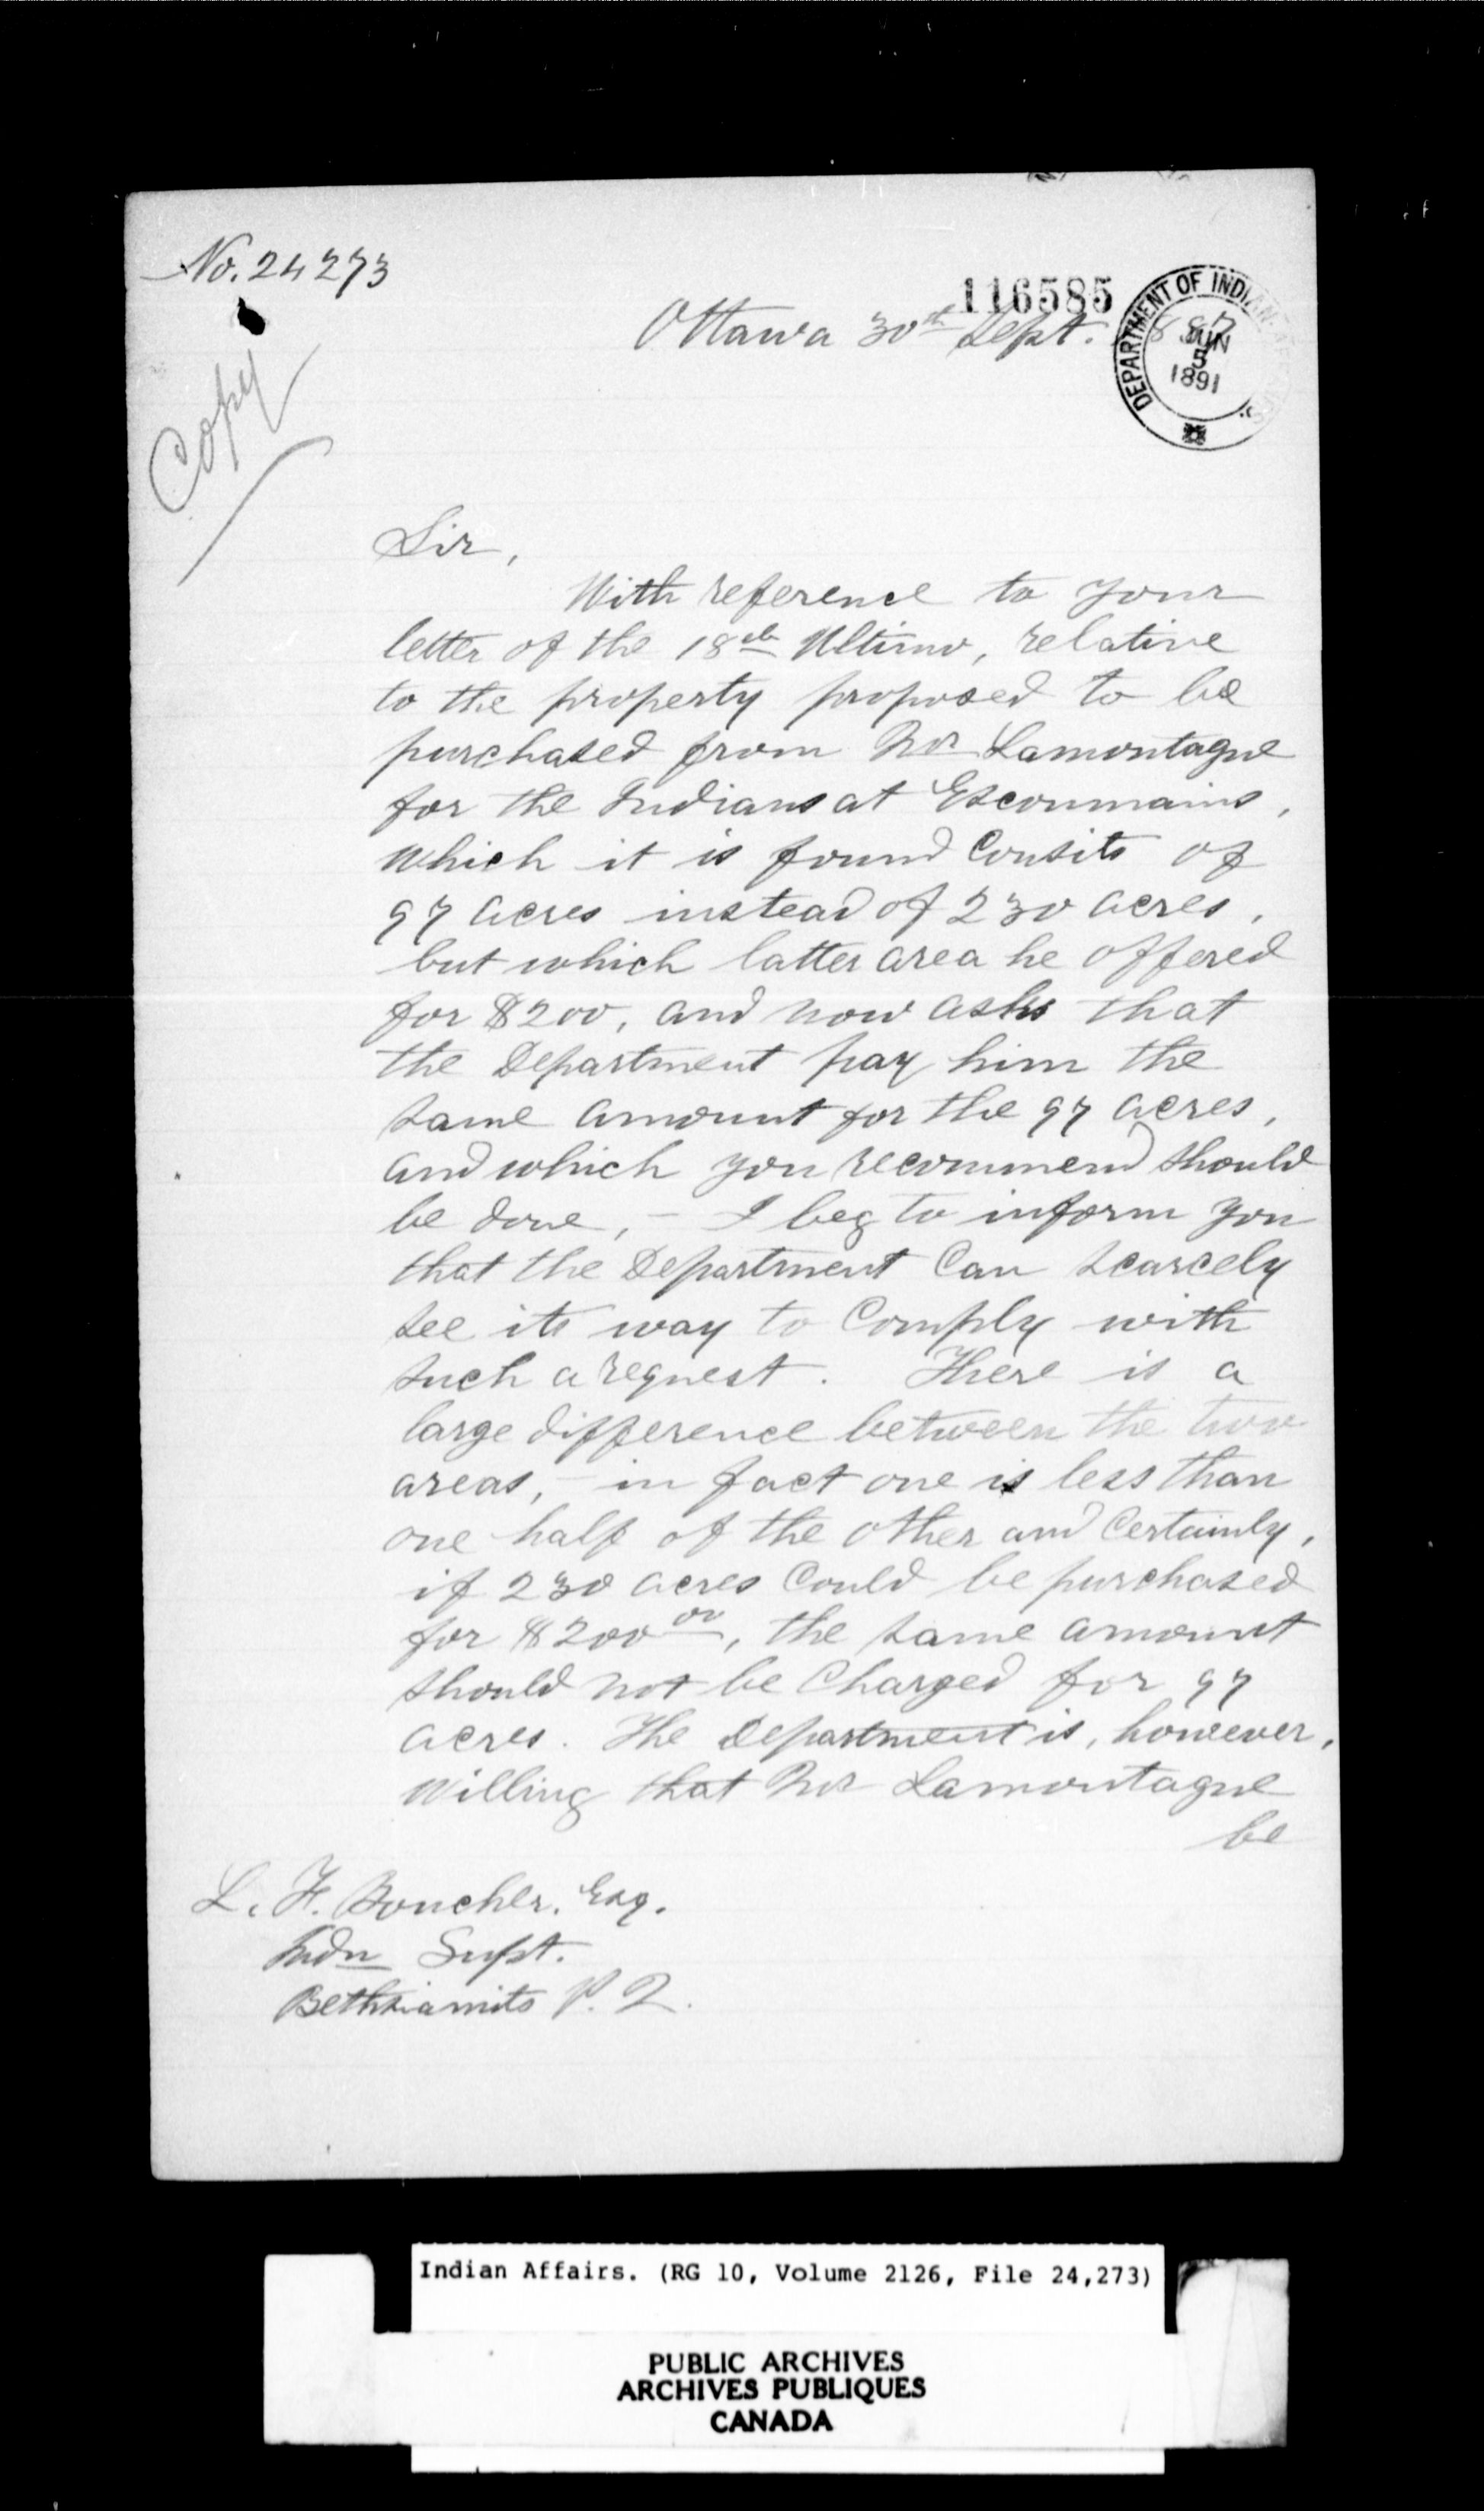 No. 24273
116585
Ottawa 30th Sept. 1887
DEPARTMENT OF INDIAN AFFAIRS
JUN
5
1891
Copy
Sir,
With reference to your
letter of the 18th Ultimo, relative
to the property proposed to be
purchased from Mr Lamontagne
for the Indians at Escoumains,
which it is found Consits of
97 acres instead of 230 acres,
but which latter area he offered
for $200, and now asks that
the Department pay him the
same amount for the 97 acres,
and which you recommend should
be done, - I beg to inform you
that the Department Can scarcely
see its way to Comply with
such a request. There is a
large difference between the two
areas, - in fact one is less than
one half of the other and Certainly,
if 230 acres Could be purchased
for $200 00, the same amount
should not be Charged for 97
acres. The Department is, however,
willing that Mr Lamontagne
be
L. F. Boucher. Esq.
Indn Supt.
Bethsiamits P. Q.
Indian Affairs. (RG 10, Volume 2126, File 24,273)
PUBLIC ARCHIVES
ARCHIVES PUBLIQUES
CANADA